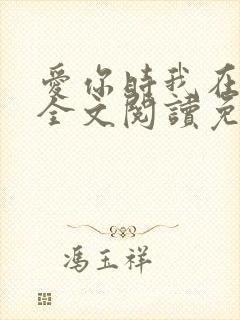 愛你時我在
全文閱讀免
馮玉祥